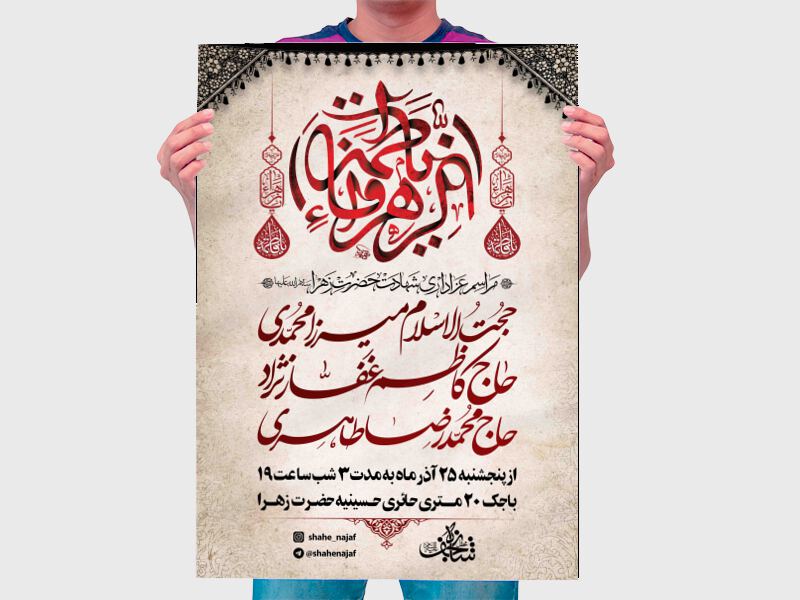 یا فاطمة الزهراء
مراسم عزاداری شهادت حضرت زهرا سلام الله علیها
حجت الاسلام میرزامحمدی
حاج کاظم غفارنژاد
حاج محمدرضا طاهری
از پنجشنبه ۲۵ آذر ماه به مدت ۳ شب ساعت ۱۹
باجک ۲۰ متری حائری حسینیه حضرت زهرا
shahe_najaf
@shahenajaf
شاه نجف